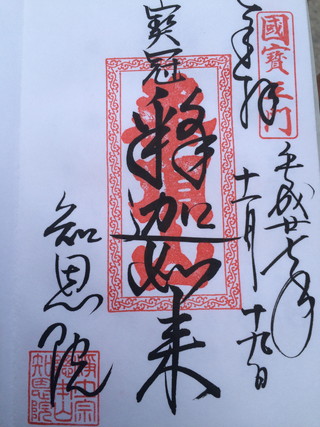 國寶三門
奉拝
平成廿七年
十一月十九日
寶冠
釋迦如来
知恩院
淨土宗
總本山
知恩院